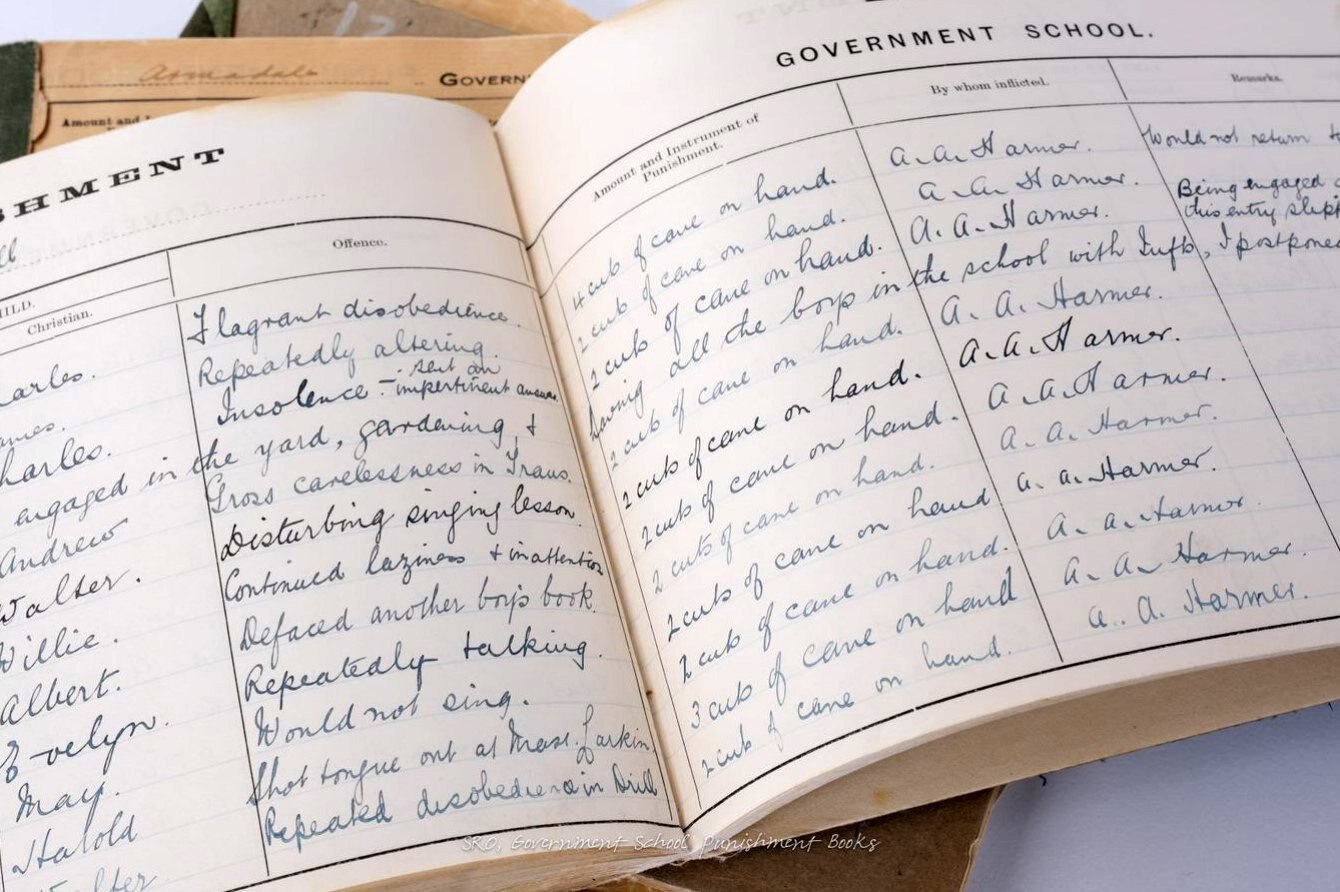 Armadale
GOVERN
Amount and I
SHMENT
GOVERNMENT SCHOOL.
ILD.
Christian.
Offence.
Amount and Instrument of
Punishment.
By whom inflicted.
Remarks.
arles. Flagrant disobedience. 4 cuts of cane on hand. A. A. Harmer. Would not return t
ames. Repeatedly altering. 2 cuts of cane on hand. A. A. Harmer. Being engaged
sent an
harles. Insolence - impertinent answer. 2 cuts of cane on hand. A. A. Harmer. this entry slipt
engaged in the yard, gardening, & Having all the boys in the school with Infts, I postponed
Andrew Gross carelessness in Trans. 2 cuts of cane on hand. A. A. Harmer.
Walter. Disturbing singing lesson. 2 cuts of cane on hand. A. A. Harmer.
Willie. Continued laziness & inattention 2 cuts of cane on hand. A. A. Harmer.
Albert. Defaced another boys book. 2 cuts of cane on hand. A. A. Harmer.
Evelyn. Repeatedly talking. 2 cuts of cane on hand A. A. Harmer.
May. Would not sing. 2 cuts of cane on hand. A. A. Harmer.
Harold Shot tongue out at Mast. Larkin. 3 cuts of cane on hand A. A. Harmer.
Walter Repeated disobedience in Drill 2 cuts of cane on hand. A. A. Harmer.
SRO, Government School Punishment Books